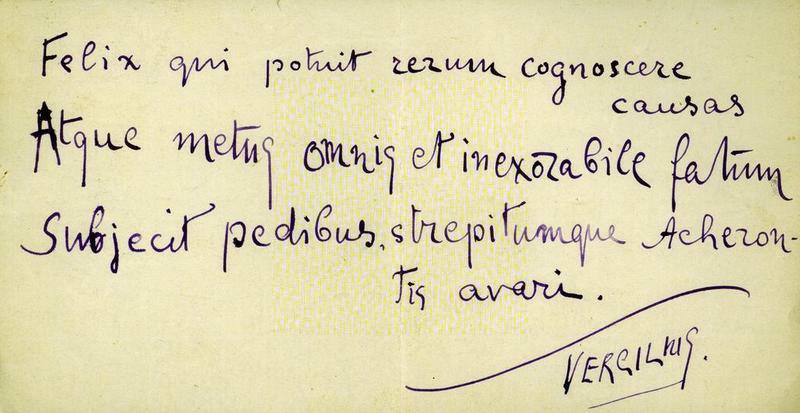 Felix qui potuit rerum cognoscere
causas
Atque metus omnis et inexorabile fatum
Subjecit pedibus, strepitumque Acheron-
tis avari.
VERGILIUS.